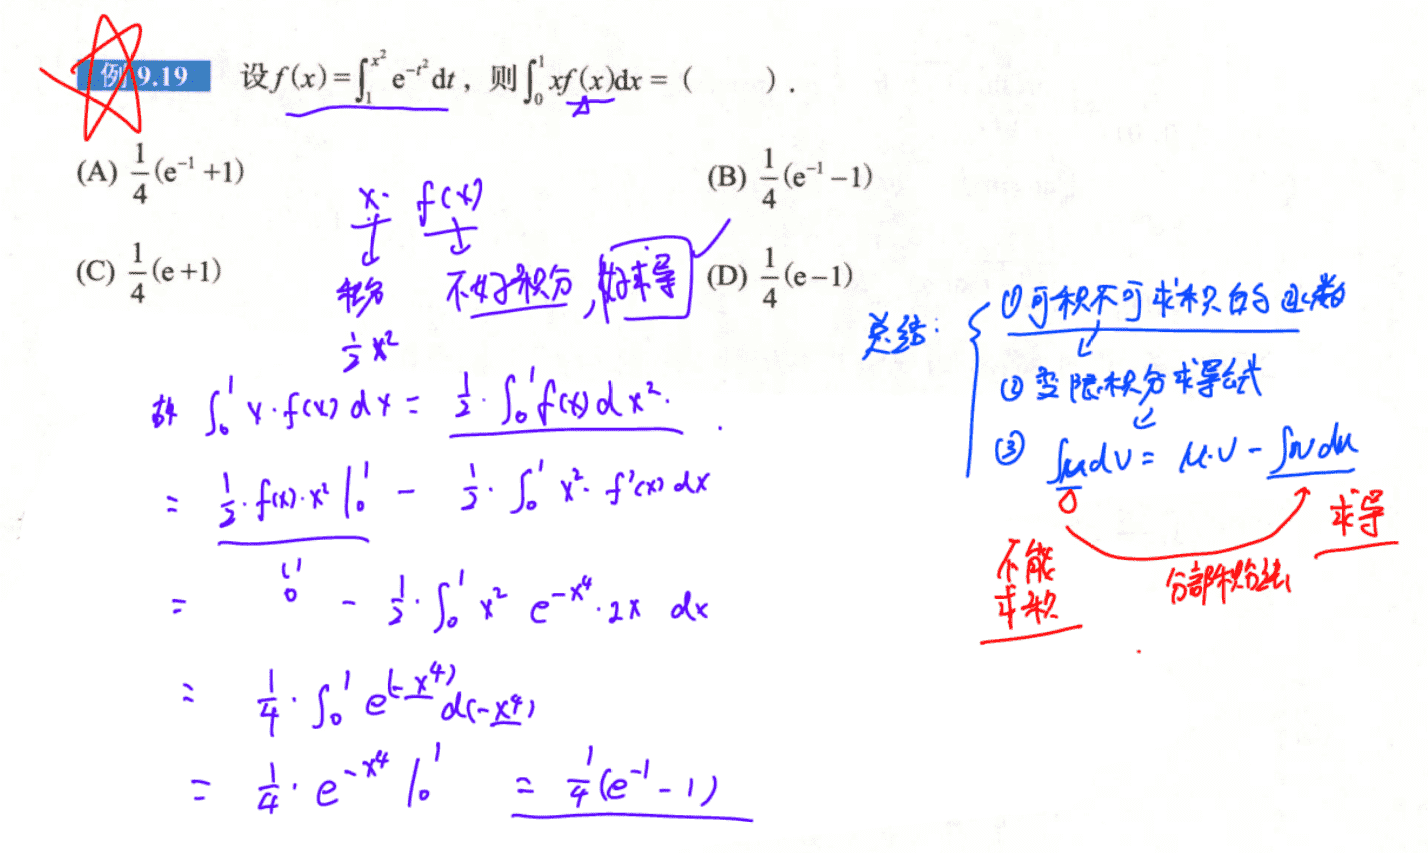 例9.19 设f(x)=∫₁^{x²} e^{-t²}dt，则∫₀¹ xf(x)dx=（ ）.
(A) 1/4(e⁻¹+1)
(B) 1/4(e⁻¹−1)
(C) 1/4(e+1)
(D) 1/4(e−1)
x· f(x)
积分 不好积分，好求导
1/2 x²
故 ∫₀¹ x·f(x)dx = 1/2·∫₀¹ f(x)dx².
= 1/2·f(x)·x²|₀¹ − 1/2·∫₀¹ x²·f'(x)dx
= 0 − 1/2·∫₀¹ x² e^{−x⁴}·2x dx
= 1/4·∫₀¹ e^{(−x⁴)} d(−x⁴)
= 1/4·e^{−x⁴}|₀¹ = 1/4(e⁻¹−1)
总结：
①可积不可求积的函数
②变限积分求导公式
③ ∫udv = u·v − ∫vdu
不能
求积
分部积分法
求导